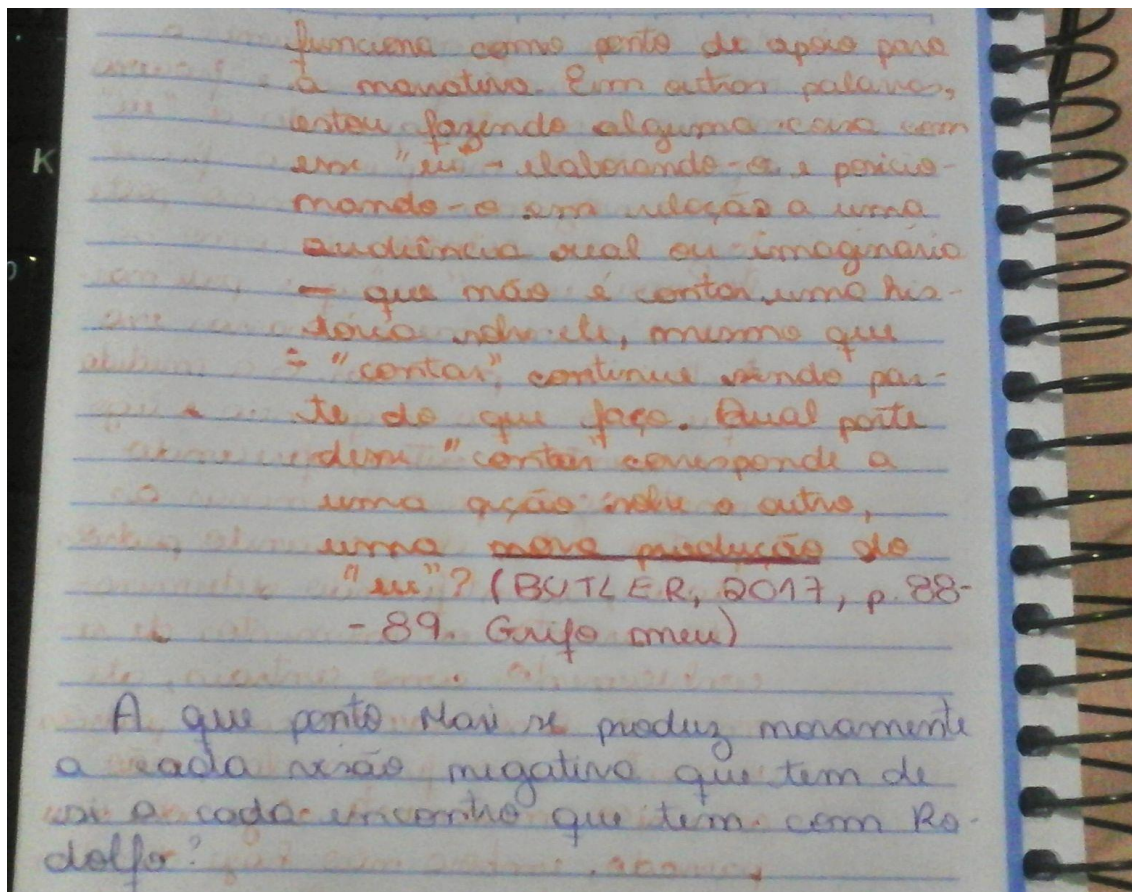 funciona como ponto de apoio para
a narrativa. Em outras palavras,
estou fazendo alguma coisa com
esse "eu" - elaborando-o e posicio-
nando-o em relação a uma
audiência real ou imaginária
- que não é contar uma his-
tória sobre ele, mesmo que
"contar" continue sendo par-
te do que faço. Qual parte
desse "contar" corresponde a
uma ação sobre o outro,
uma nova produção do
"eu"? (BUTLER, 2017, p. 88-
-89. Grifo meu)
A que ponto Mavi se produz novamente
a cada visão negativa que tem de
si a cada encontro que tem com Ro-
dolfo?
K